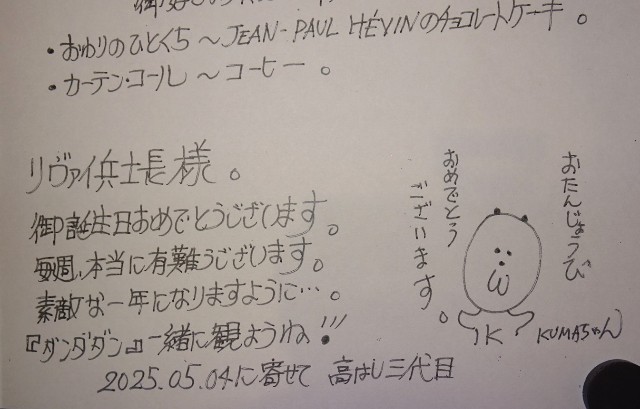 ・おわりのひとくち～JEAN-PAUL HÉVINのチョコレートケーキ。
・カーテン・コール～コーヒー。
リヴァイ兵士長様。
御誕生日おめでとうございます。
毎週、本当に有難うございます。
素敵な一年になりますように…。
『ダンダダン』一緒に観ようね!!!
2025.05.04に寄せて 高はし三代目
おたんじょうび
おめでとう
ございます。
K
KUMAちゃん